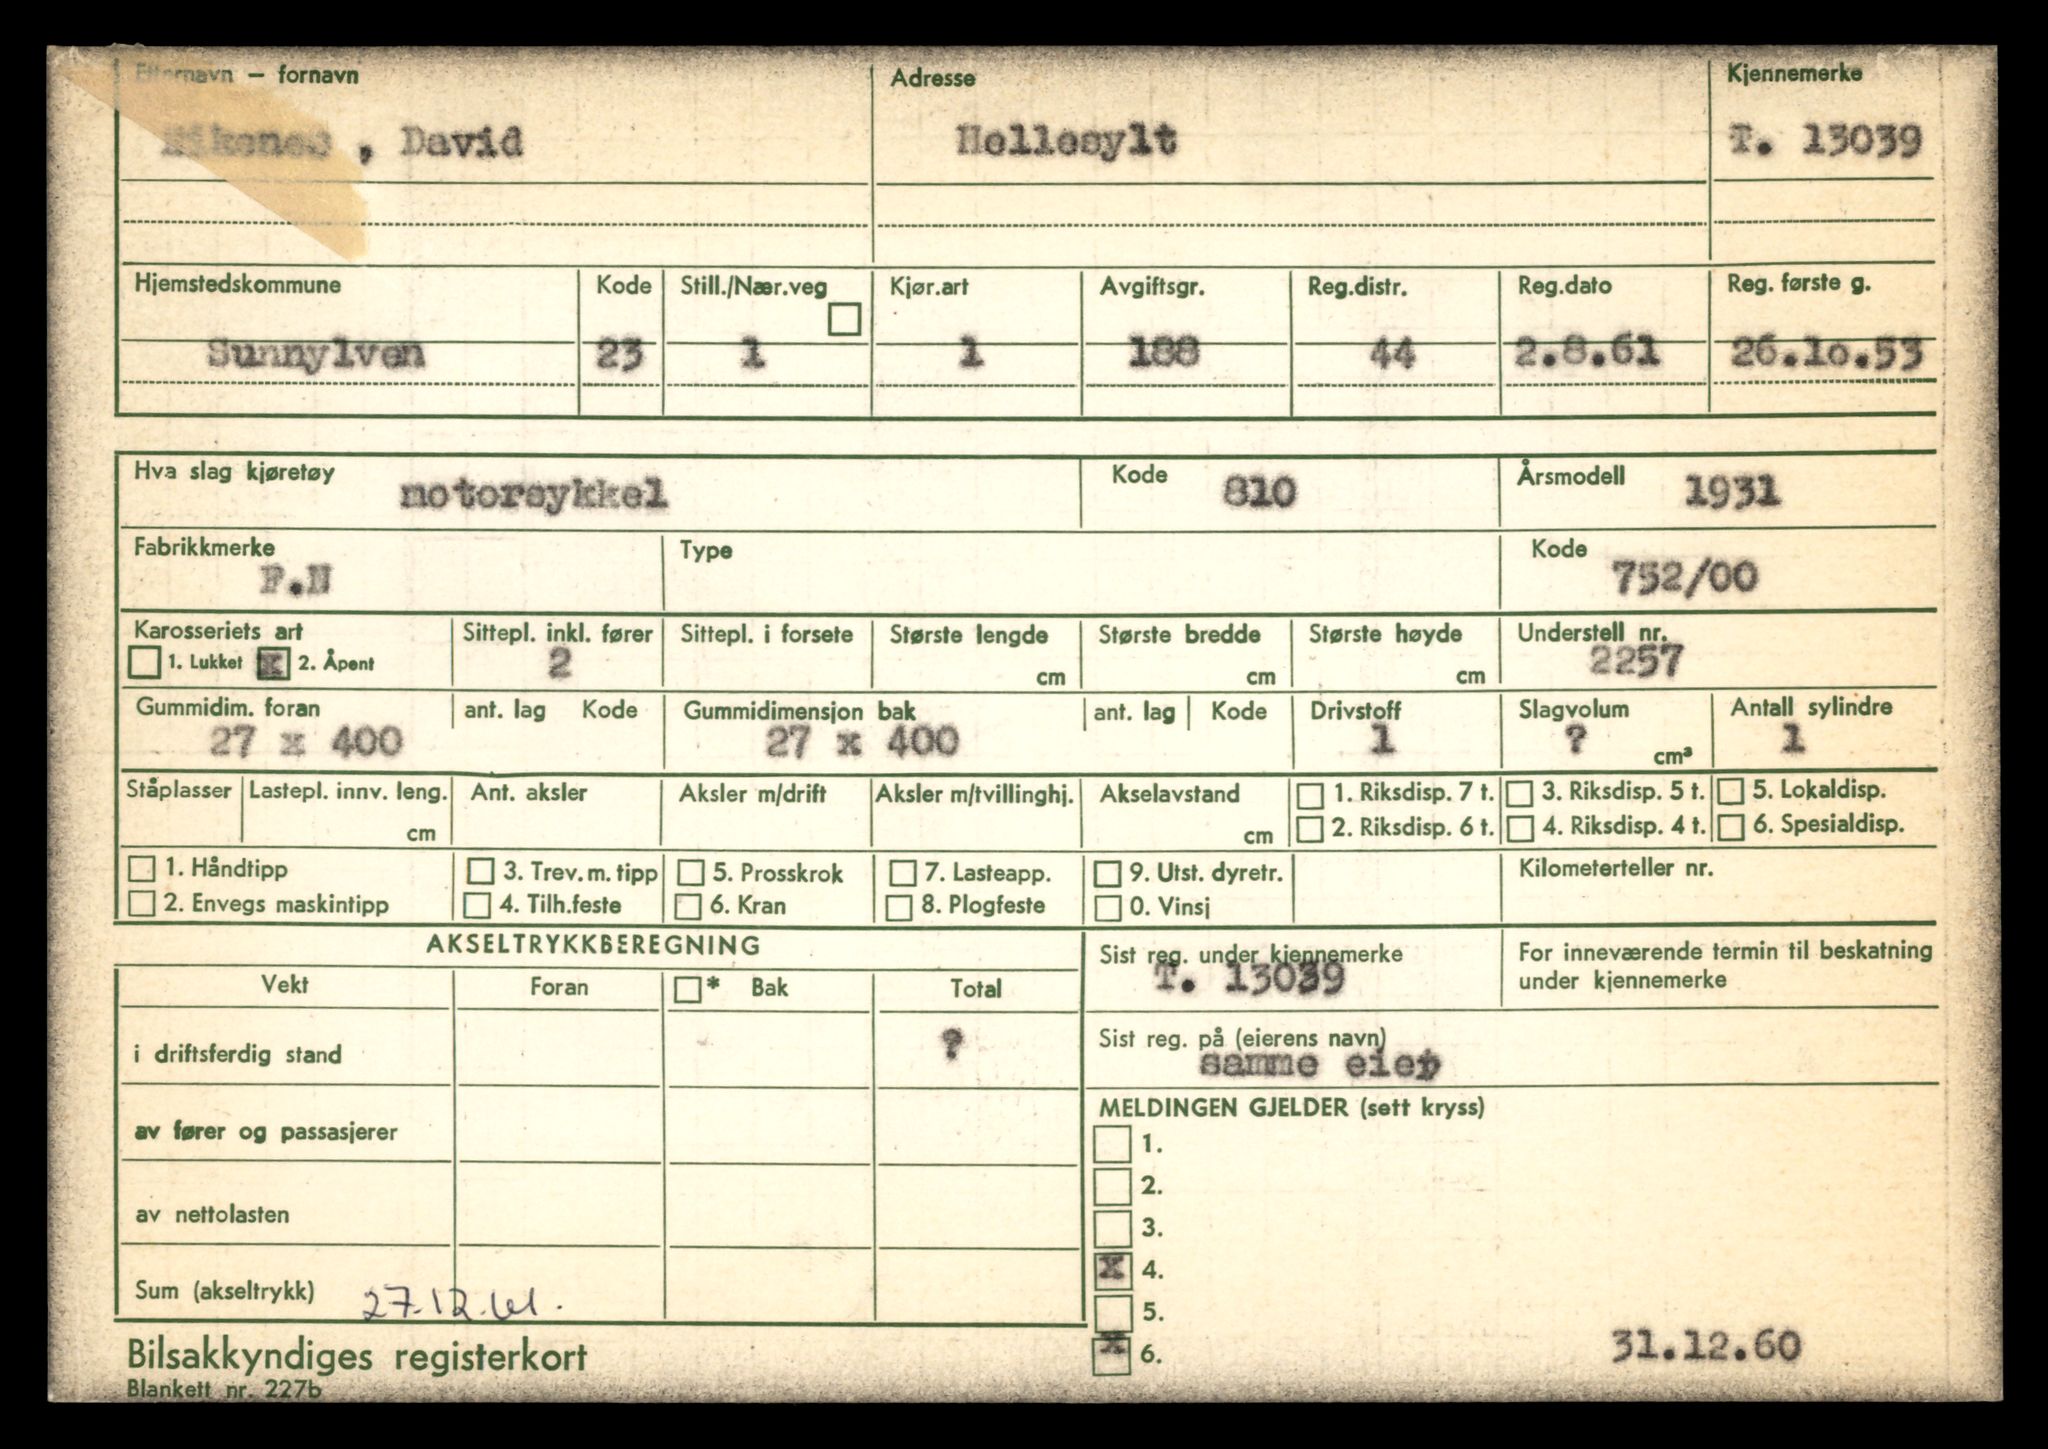 Etternavn – fornavn Adresse Kjennemerke
, David Hellesylt T. 13039
Hjemstedskommune Kode Still./Nær.veg Kjør.art Avgiftsgr. Reg.distr. Reg.dato Reg. første g.
Sunnylven 23 1 1 188 44 2.8.61 26.10.53
Hva slag kjøretøy motorsykkel Kode 810 Årsmodell 1931
Fabrikkmerke Type Kode
F.N 752/00
Karosseriets art Sittepl. inkl. fører Sittepl. i forsete Største lengde Største bredde Største høyde Understell nr.
1. Lukket x 2. Åpent 2 cm cm cm 2257
Gummidim. foran ant. lag Kode Gummidimensjon bak ant. lag Kode Drivstoff Slagvolum Antall sylindre
27 x 400 27 x 400 1 ? cm³ 1
Ståplasser Lastepl. innv. leng. Ant. aksler Aksler m/drift Aksler m/tvillinghj. Akselavstand 1. Riksdisp. 7 t. 3. Riksdisp. 5 t. 5. Lokaldisp.
cm cm 2. Riksdisp. 6 t. 4. Riksdisp. 4 t. 6. Spesialdisp.
1. Håndtipp 3. Trev. m. tipp 5. Prosskrok 7. Lasteapp. 9. Utst. dyretr. Kilometerteller nr.
2. Envegs maskintipp 4. Tilh.feste 6. Kran 8. Plogfeste 0. Vinsj
AKSELTRYKKBEREGNING
Vekt Foran * Bak Total
i driftsferdig stand ?
av fører og passasjerer
av nettolasten
Sum (akseltrykk) 27.12.61.
Sist reg. under kjennemerke For inneværende termin til beskatning
T. 13039 under kjennemerke
Sist reg. på (eierens navn)
samme eier
MELDINGEN GJELDER (sett kryss)
1.
2.
3.
x 4.
5.
x 6. 31.12.60
Bilsakkyndiges registerkort
Blankett nr. 227b